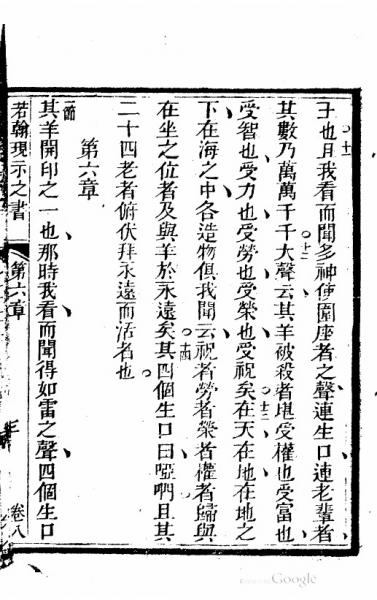 王也十一且我看而聞多神使圍座者之聲連生口連老輩者
其數乃萬萬千千十二大聲云其羊被殺者堪受權也受富也
受智也受力也受勞也受榮也受祝矣十三在天在地在地之
下在海之中各造物俱我聞云祝者勞者榮者權者歸與
在坐之位者及與羊於永遠矣十四其四個生口曰啞們且其
二十四老者俯伏拜永遠而活者也
第六章
一節其羊開印之一也那時我看而聞得如雷之聲四個生口
若翰現示之書 第六章 卷八
Google